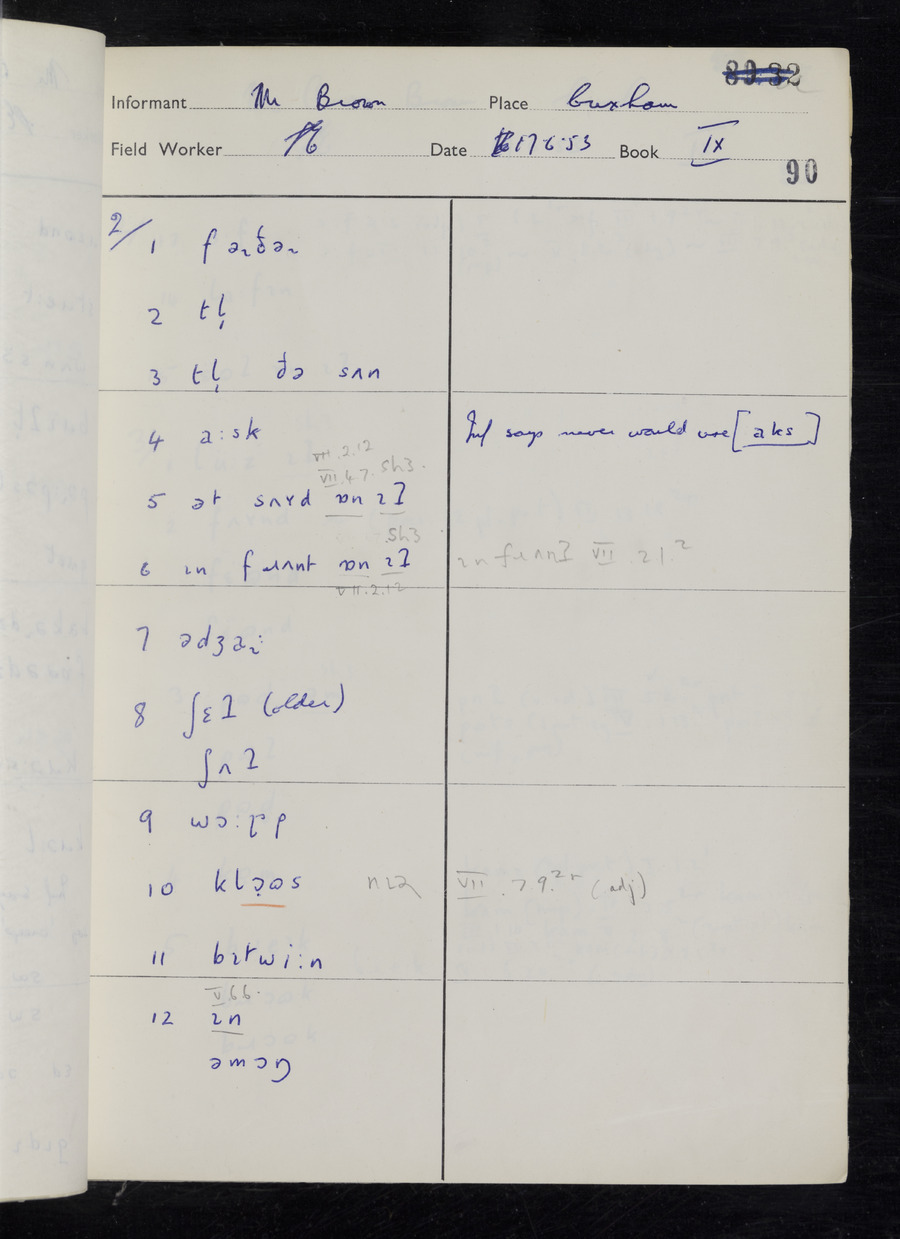 89.32
Informant Mr Brown Place Cuxham
Field Worker Date 17.6.53 Book IX
90
2/
1 fəɹðəɹ
2 tl̩
3 tl̩ ðə sʌn
4 a:sk Inf says never would use [aks]
VII.2.12
VII.4.7. Sh3.
5 ət sʌɤd ɒn ɪt
Sh3
6 ɪn fɹʌnt ɒn ɪt ɪn fɹʌnt VII 2 1.2
VII.2.12
7 ədʒəɹ:
8 ʃɛt (older)
ʃʌt
9 wɔ:ɽp
10 klɔ̣ʊs VII.7.9. (adj)
11 bɪtwi:n
12
V.6.6.
ɪn